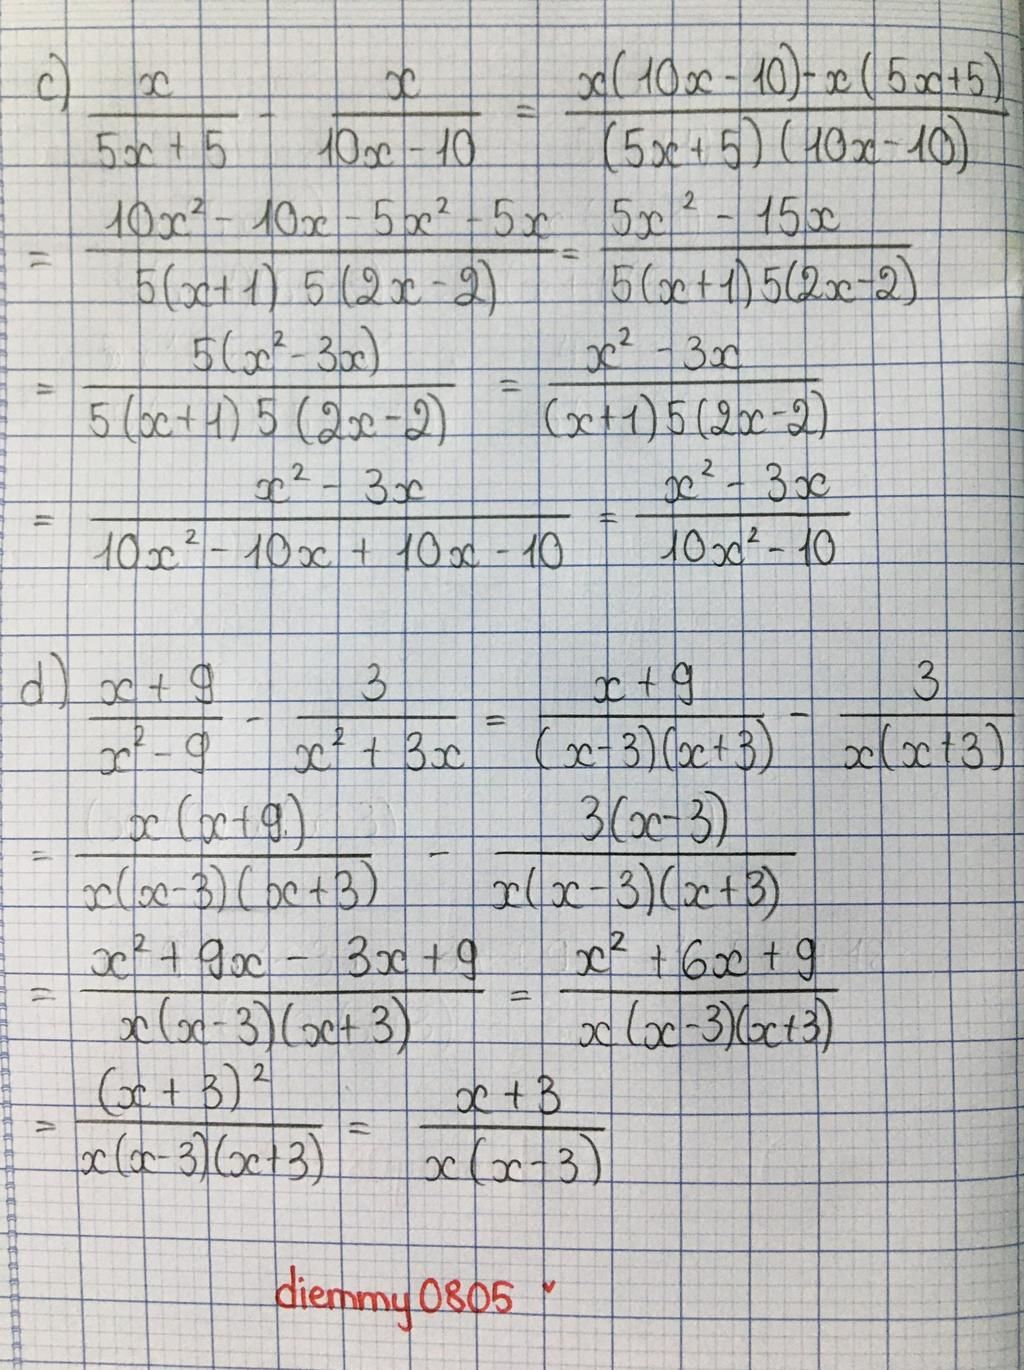 c) x/(5x + 5) - x/(10x - 10) = (x(10x - 10) - x(5x+5))/((5x+5)(10x-10))
= (10x² - 10x - 5x² - 5x)/(5(x+1) 5(2x-2)) = (5x² - 15x)/(5(x+1) 5(2x-2))
= (5(x² - 3x))/(5(x+1) 5(2x-2)) = (x² - 3x)/((x+1) 5(2x-2))
= (x² - 3x)/(10x² - 10x + 10x - 10) = (x² - 3x)/(10x² - 10)
d) (x + 9)/(x² - 9) - 3/(x² + 3x) = (x + 9)/((x-3)(x+3)) - 3/(x(x+3))
= (x(x+9))/(x(x-3)(x+3)) - (3(x-3))/(x(x-3)(x+3))
= (x² + 9x - 3x + 9)/(x(x-3)(x+3)) = (x² + 6x + 9)/(x(x-3)(x+3))
= (x + 3)²/(x(x-3)(x+3)) = (x + 3)/(x(x-3))
diemmy0805